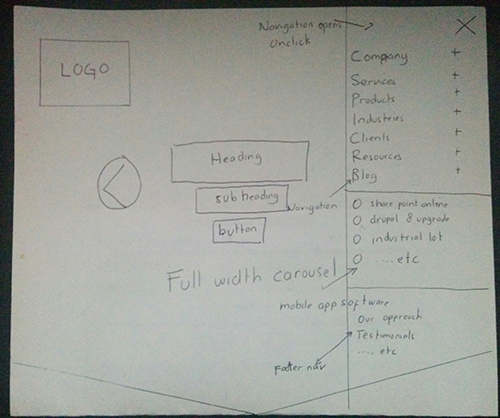 Navigation opens
Onclick
LOGO
Company +
Services +
Products +
Industries +
Clients +
Resources +
Blog +
Heading
sub heading
button
Navigation
share point online
drupal 8 upgrade
industrial Iot
....etc
Full width carousel
mobile app software
Our approach
Testimonials
..... etc
Footer nav